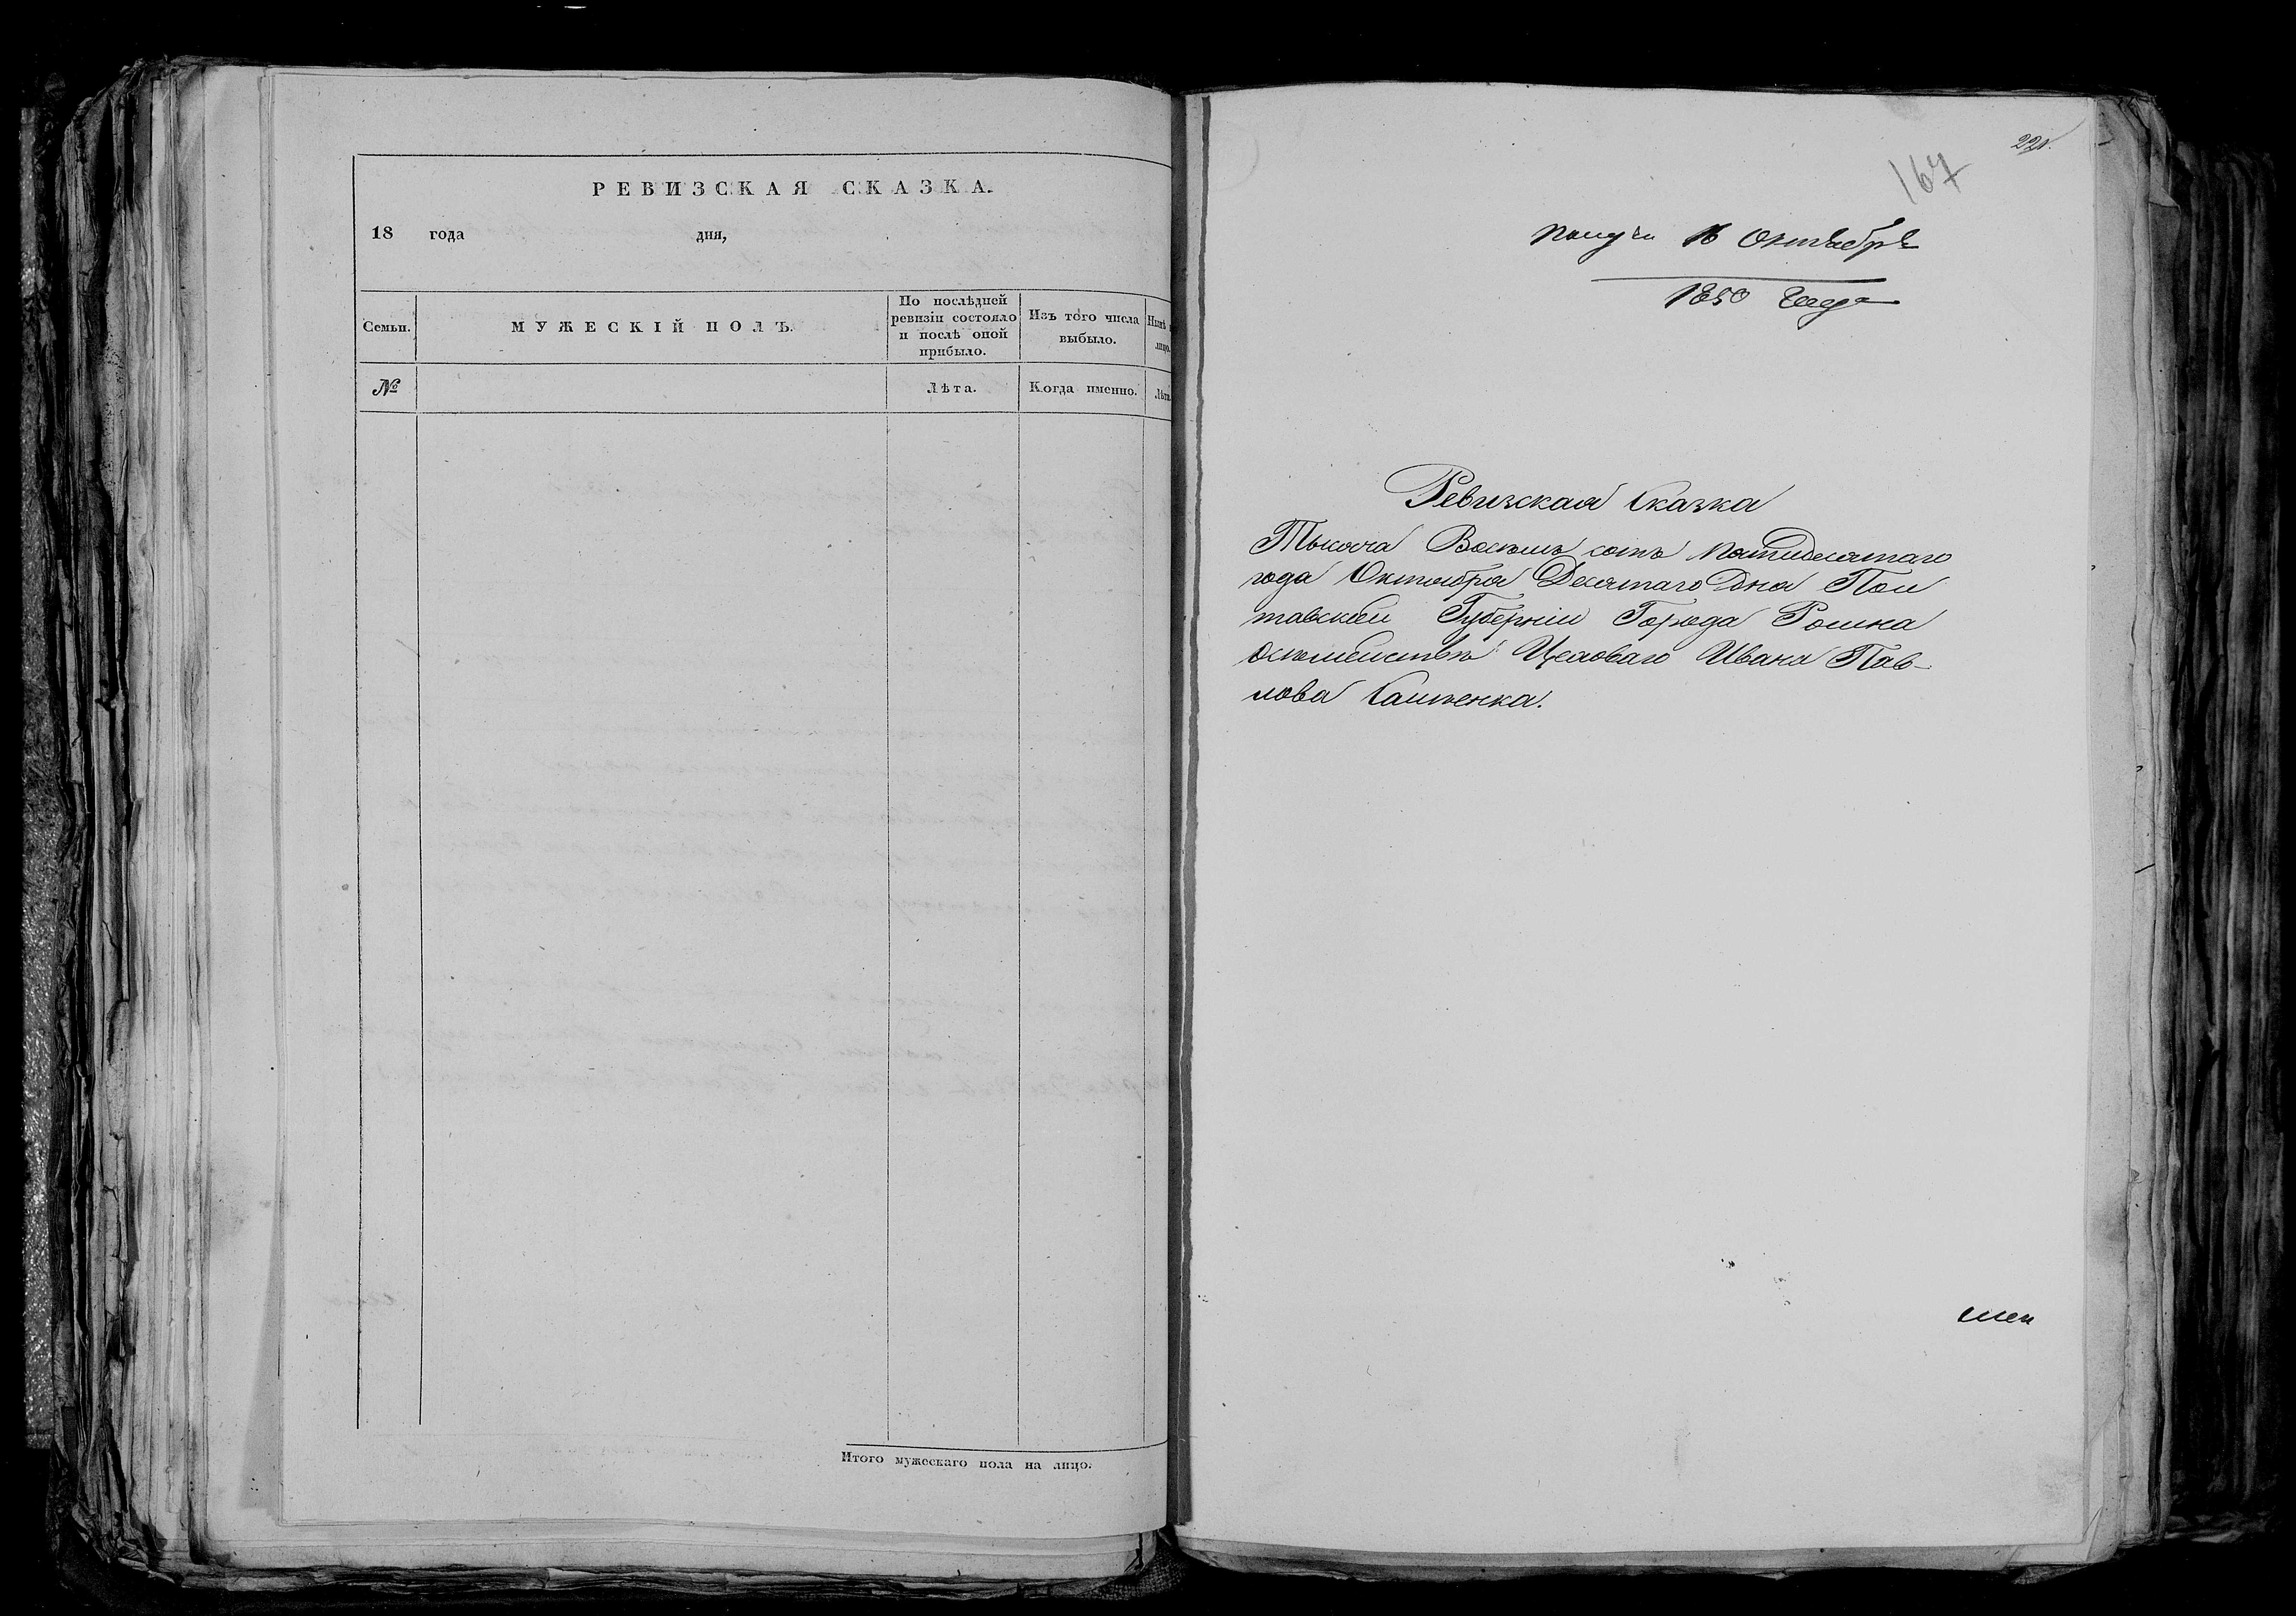 РЕВИЗСКАЯ СКАЗКА.
18 года дня,
Семьи.
МУЖЕСКІЙ ПОЛЪ.
По послѣдней
ревизіи состояло
и послѣ оной
прибыло.
Изъ того числа
выбыло.
Нынѣ
лицо.
№
Лѣта.
Когда именно.
Лѣта.
Итого мужескаго пола на лицо.
167
16 Октября
1850 Года
Ревизская Сказка
Тысяча Восемь сотъ пятидесятаго
года Октября Десятаго Дня Пол
тавской Губерніи Города Ромна
осемействѣ Цеховаго Ивана Пав-
лова